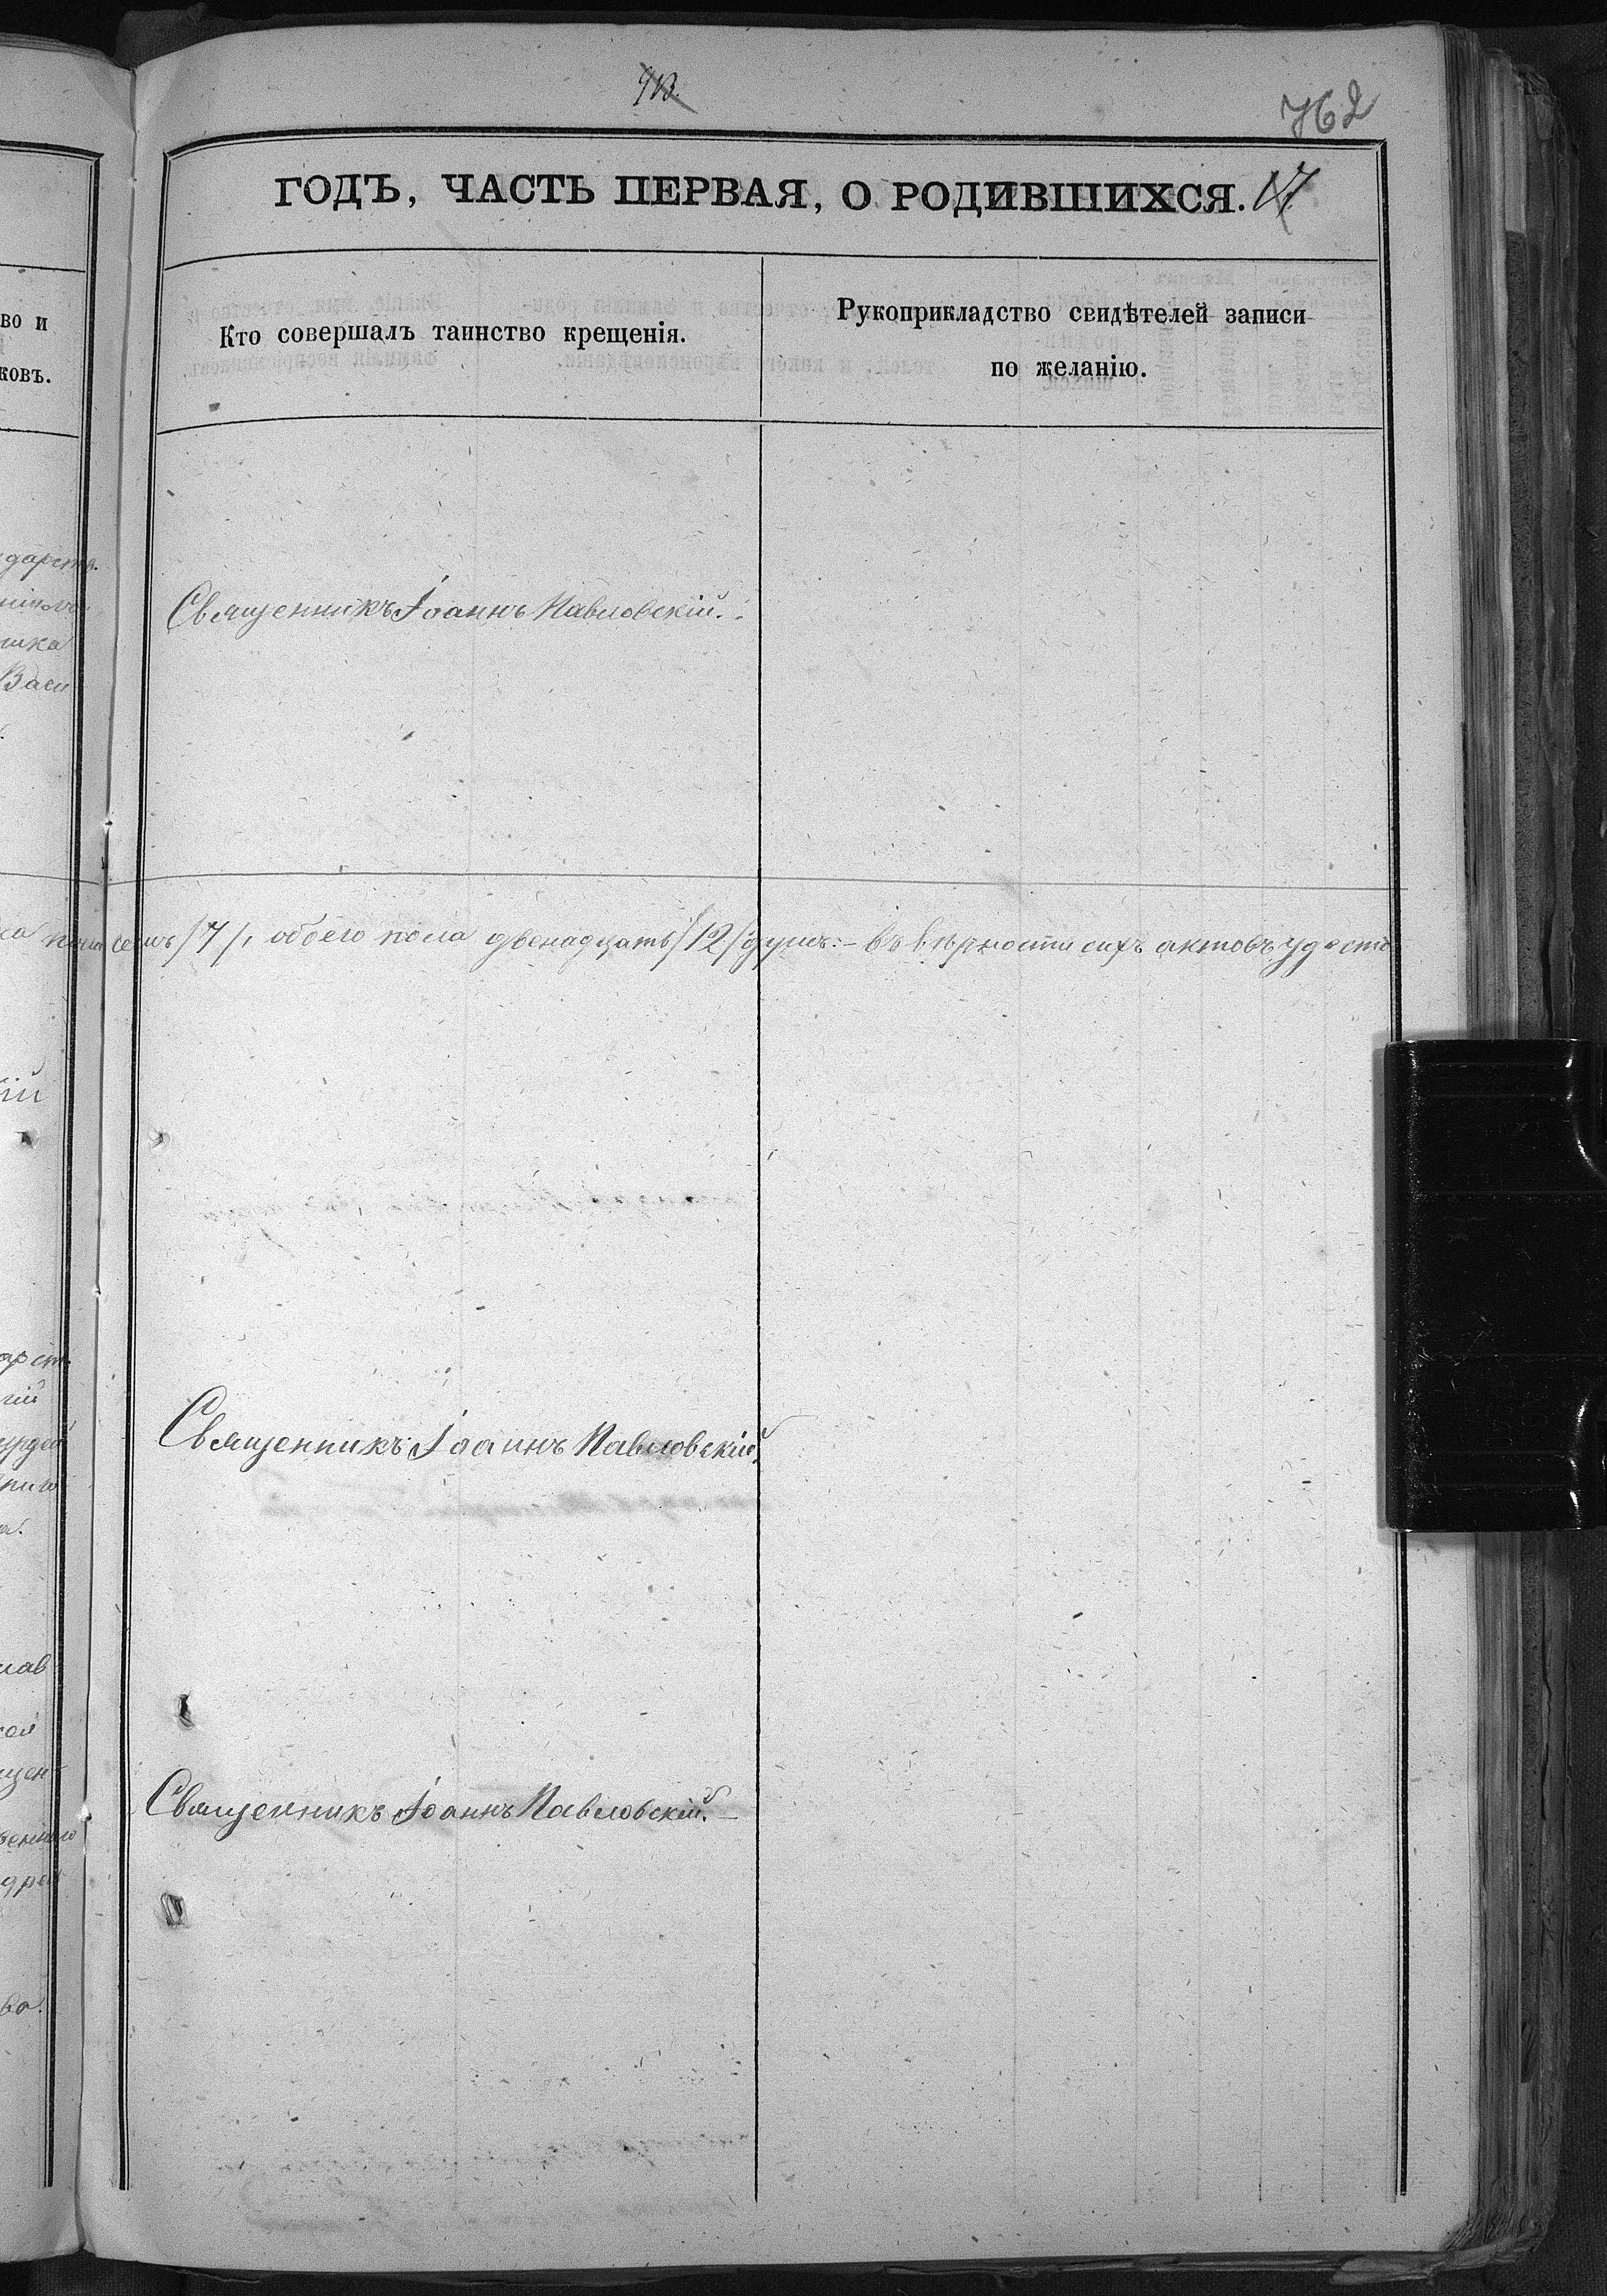 762
ГОДЪ, ЧАСТЬ ПЕРВАЯ, О РОДИВШИХСЯ. 17
во и
ковъ.
Кто совершалъ таинство крещенія.
Рукоприкладство свидѣтелей записи
по желанію.
дарств.
ника
Васи
Священникъ Іоаннъ Павловскій.
семь /7/, обоего пола двенадцать /12/ душъ. – Въ вѣрности сихъ актовъ удосто
ій
Священникъ Іоаннъ Павловскій.
Священникъ Іоаннъ Павловскій. –
ва.